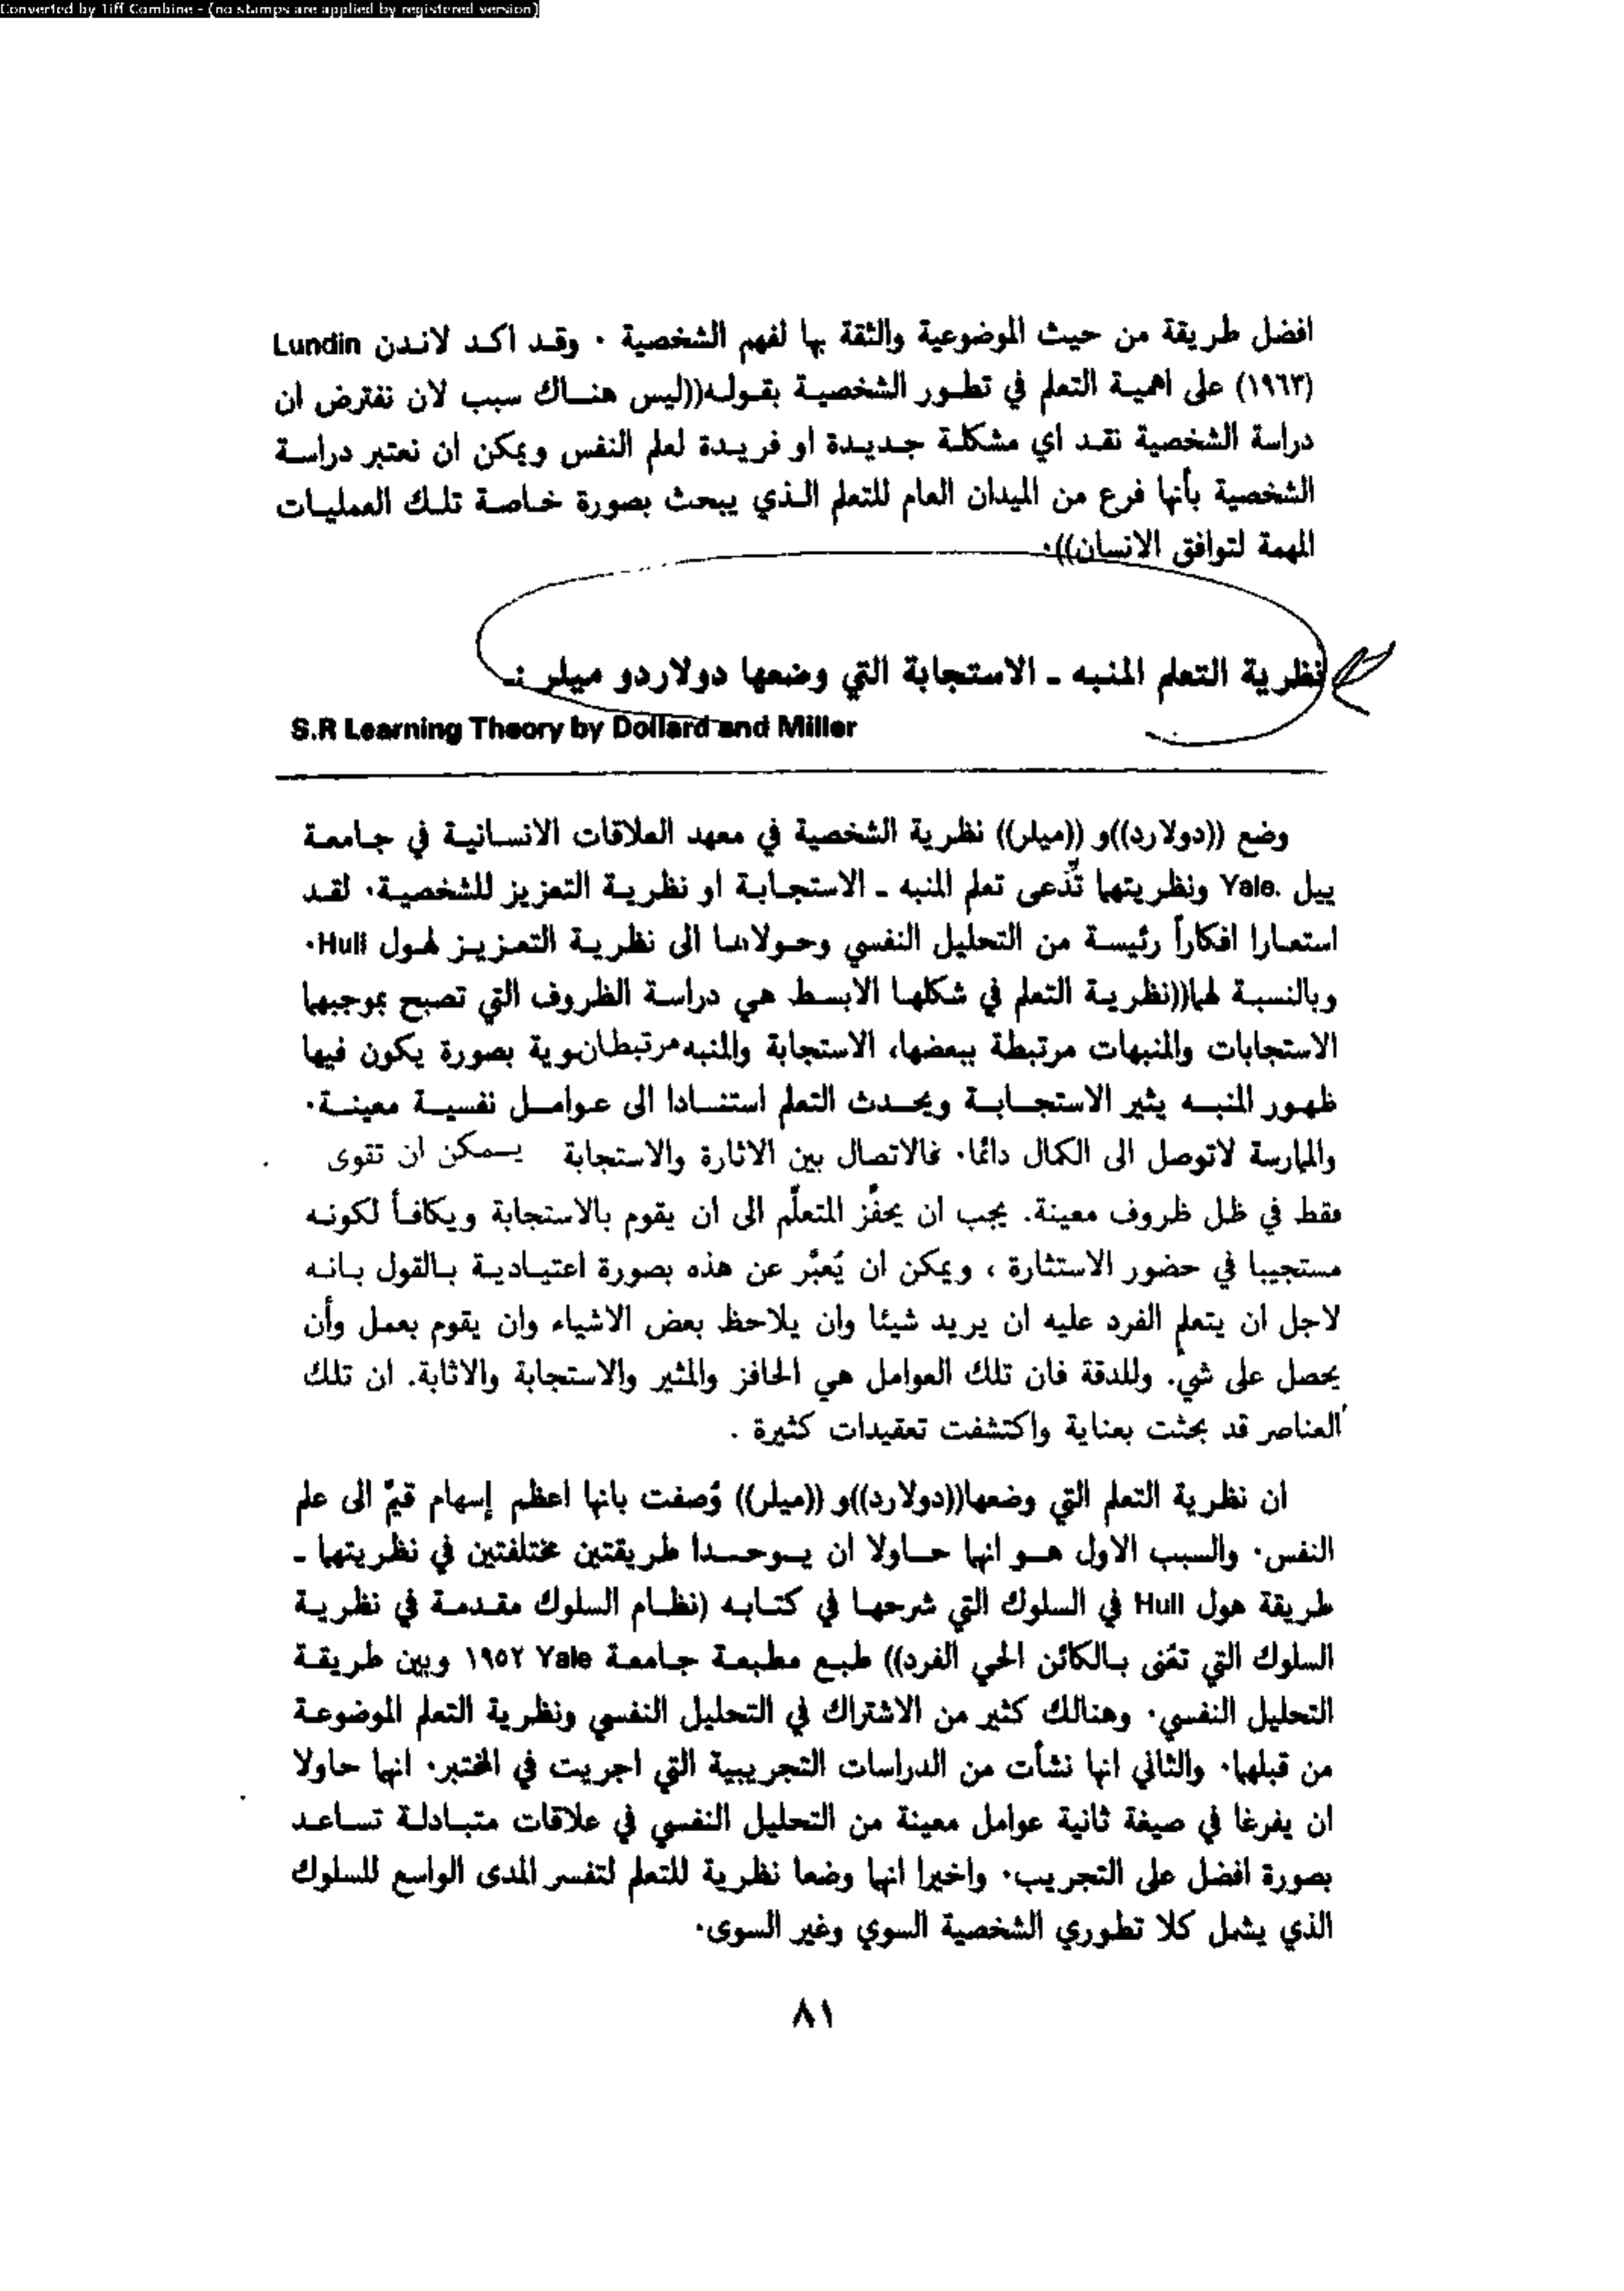 Converted by Tiff Combine - (no stamps are applied by registered version)
افضل طريقة من حيث الموضوعية والثقة بها لفهم الشخصية . وقد اكد لاندن Lundin
(١٩٦٣) على اهمية التعلم في تطور الشخصية بقوله((ليس هناك سبب لان نفترض ان
دراسة الشخصية نقد اي مشكلة جديدة او فريدة لعلم النفس ويمكن ان نعتبر دراسة
الشخصية بأنها فرع من الميدان العام للتعلم الذي يبحث بصورة خاصة تلك العمليات
المهمة لتوافق الانسان)).
نظرية التعلم المنبه ـ الاستجابة التي وضعها دولاردو ميلر :ـ
S.R Learning Theory by Dollard and Miller
وضع ((دولارد))و ((ميلر)) نظرية الشخصية في معهد العلاقات الانسانية في جامعة
ييل Yale. ونظريتهما تُدعى تعلم المنبه ـ الاستجابة او نظرية التعزيز للشخصية. لقد
استعارا افكاراً رئيسة من التحليل النفسي وحولاها الى نظرية التعزيز لهول Hull.
وبالنسبة لهما((نظرية التعلم في شكلها الابسط هي دراسة الظروف التي تصبح بموجبها
الاستجابات والمنبهات مرتبطة ببعضها، الاستجابة والمنبه مرتبطان سوية بصورة يكون فيها
ظهور المنبه يثير الاستجابة ويحدث التعلم استنادا الى عوامل نفسية معينة.
والممارسة لاتوصل الى الكمال دائما. فالاتصال بين الاثارة والاستجابة يمكن ان تقوى
فقط في ظل ظروف معينة. يجب ان يحفّز المتعلّم الى ان يقوم بالاستجابة ويكافأ لكونه
مستجيبا في حضور الاستثارة ، ويمكن ان يُعبّر عن هذه بصورة اعتيادية بالقول بانه
لاجل ان يتعلم الفرد عليه ان يريد شيئا وان يلاحظ بعض الاشياء وان يقوم بعمل وأن
يحصل على شيء. وللدقة فان تلك العوامل هي الحافز والمثير والاستجابة والاثابة. ان تلك
العناصر قد بحثت بعناية واكتشفت تعقيدات كثيرة .
ان نظرية التعلم التي وضعها((دولارد))و ((ميلر)) وُصفت بانها اعظم إسهام قيّم الى علم
النفس. والسبب الاول هو انهما حاولا ان يوحدا طريقتين مختلفتين في نظريتهما ـ
طريقة هول Hull في السلوك التي شرحها في كتابه (نظام السلوك مقدمة في نظرية
السلوك التي تعنى بالكائن الحي الفرد)) طبع مطبعة جامعة Yale ١٩٥٢ وبين طريقة
التحليل النفسي. وهنالك كثير من الاشتراك في التحليل النفسي ونظرية التعلم الموضوعة
من قبلهما. والثاني انها نشأت من الدراسات التجريبية التي اجريت في المختبر. انهما حاولا
ان يفرغا في صيغة ثانية عوامل معينة من التحليل النفسي في علاقات متبادلة تساعد
بصورة افضل على التجريب. واخيرا انهما وضعا نظرية للتعلم لتفسر المدى الواسع للسلوك
الذي يشمل كلا تطوري الشخصية السوي وغير السوى.
٨١